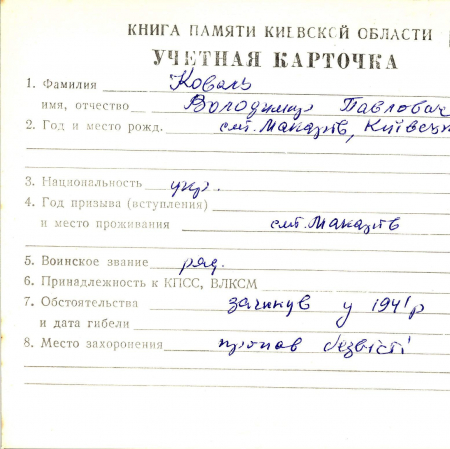 КНИГА ПАМЯТИ КИЕВСКОЙ ОБЛАСТИ
УЧЕТНАЯ КАРТОЧКА
1. Фамилия Коваль
имя, отчество Володимир Павлович
2. Год и место рожд. смт. Макарів, Київськ
3. Национальность укр.
4. Год призыва (вступления)
и место проживания смт. Макарів
5. Воинское звание ряд.
6. Принадлежность к КПСС, ВЛКСМ
7. Обстоятельства загинув у 1941 р
и дата гибели
8. Место захоронения пропав безвісті